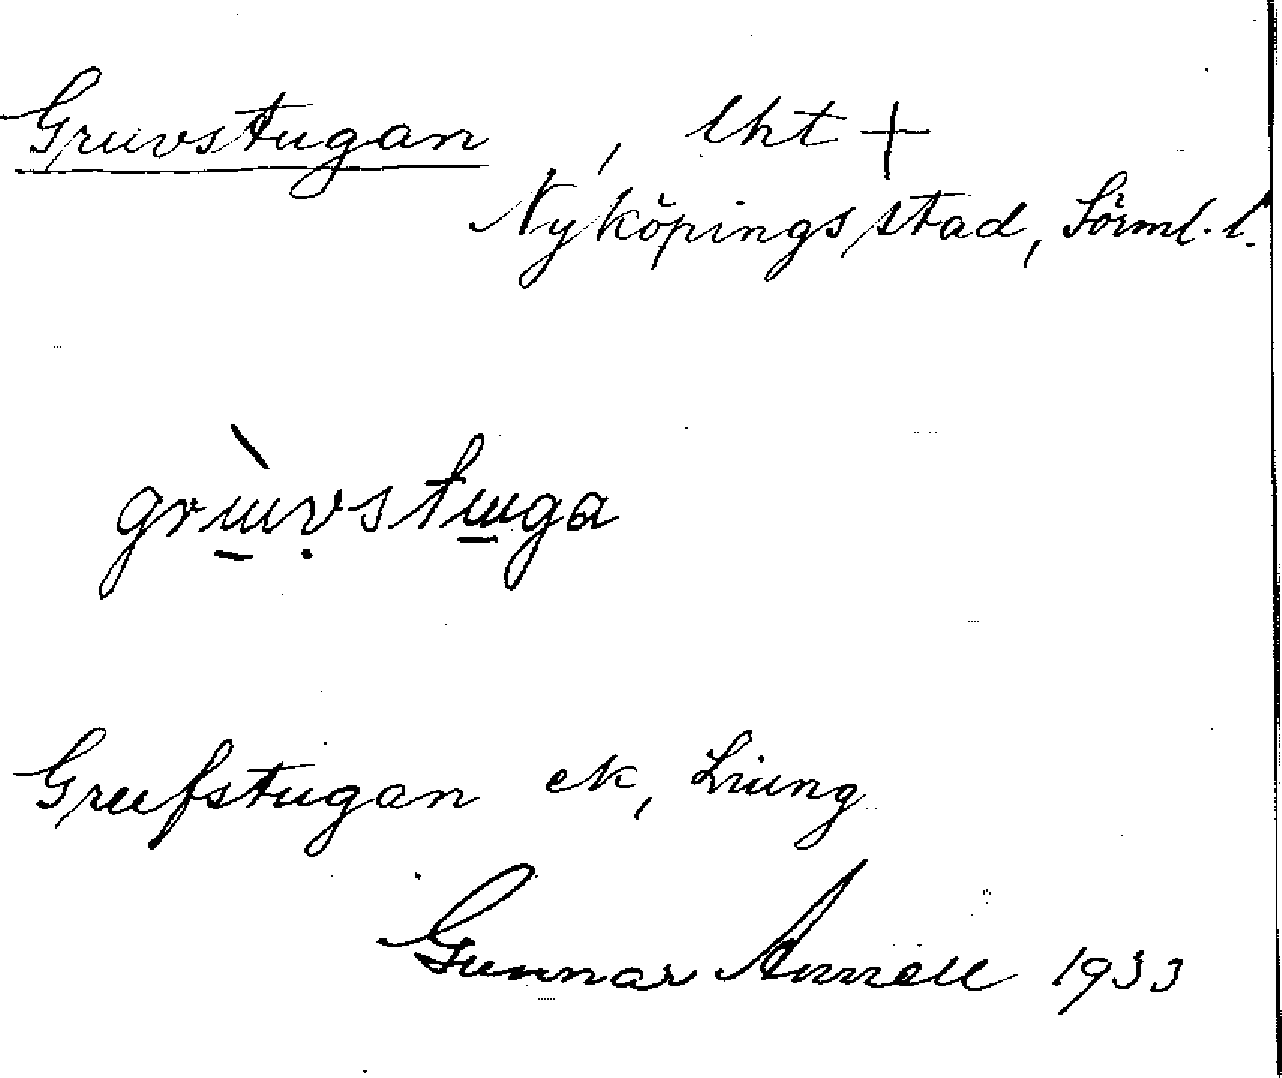 Gruvstugan, lht +
Nyköpings stad, Sörml. l.
grùvstuga
Grufstugan ek, Liung
Gunnar Annell 1933